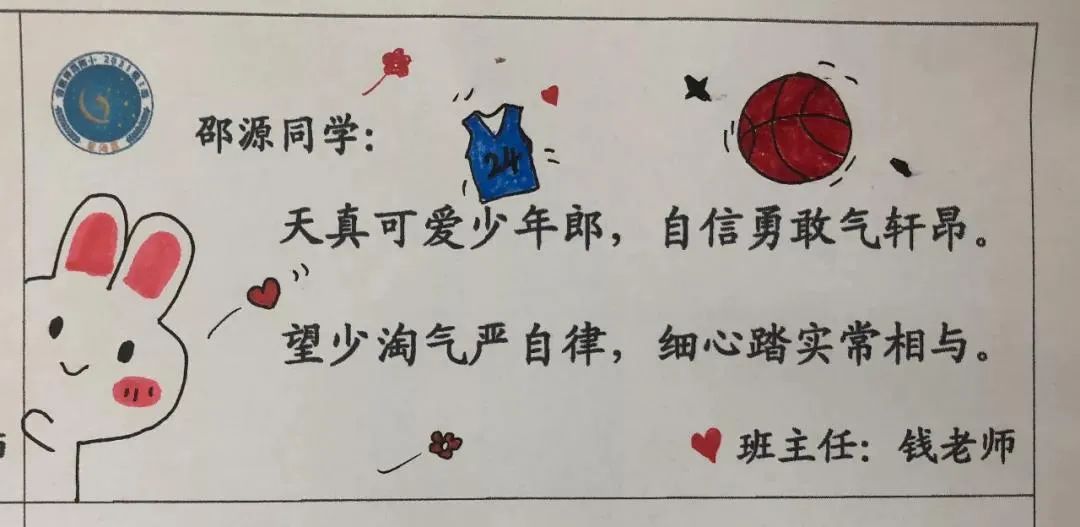 邵源同学：
24
天真可爱少年郎，自信勇敢气轩昂。
望少淘气严自律，细心踏实常相与。
班主任：钱老师